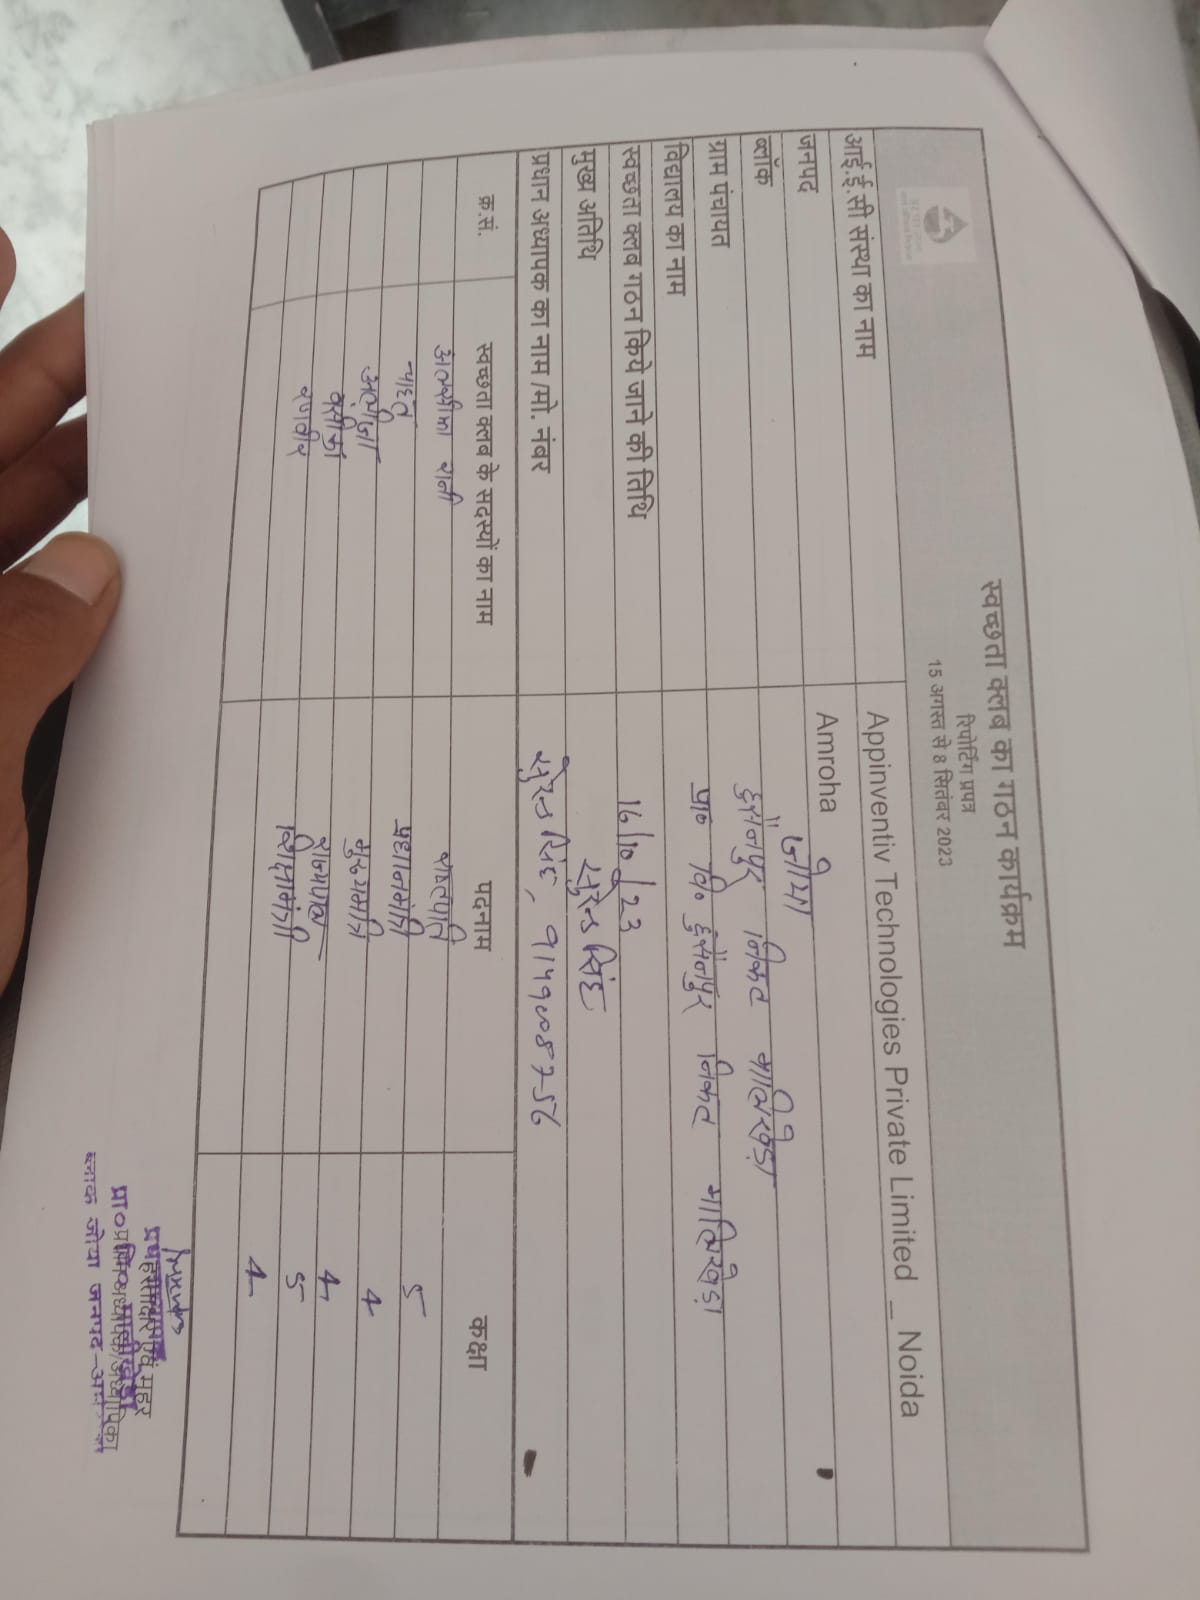 स्वच्छता क्लब का गठन कार्यक्रम
रिपोर्टिंग प्रपत्र
15 अगस्त से 8 सितंबर 2023
आई.ई.सी संस्था का नाम Appinventiv Technologies Private Limited _ Noida
जनपद Amroha
ब्लॉक जोया
ग्राम पंचायत हुसैनपुर निकट मालिखेड़ा
विद्यालय का नाम प्रा० वि० हुसैनपुर निकट मालिखेड़ा
स्वच्छता क्लब गठन किये जाने की तिथि 16/10/23
मुख्य अतिथि सुरेन्द्र सिंह
प्रधान अध्यापक का नाम /मो. नंबर सुरेन्द्र सिंह,
क्र.सं. स्वच्छता क्लब के सदस्यों का नाम पदनाम कक्षा
रानी राष्ट्रपति 5
प्रधानमंत्री 4
4
राज्यपाल 5
शिक्षामंत्री 4
हस्ताक्षर एवं मुहर
प्रधानाध्यापक/अध्यापिका
ब्लाक जोया जनपद-